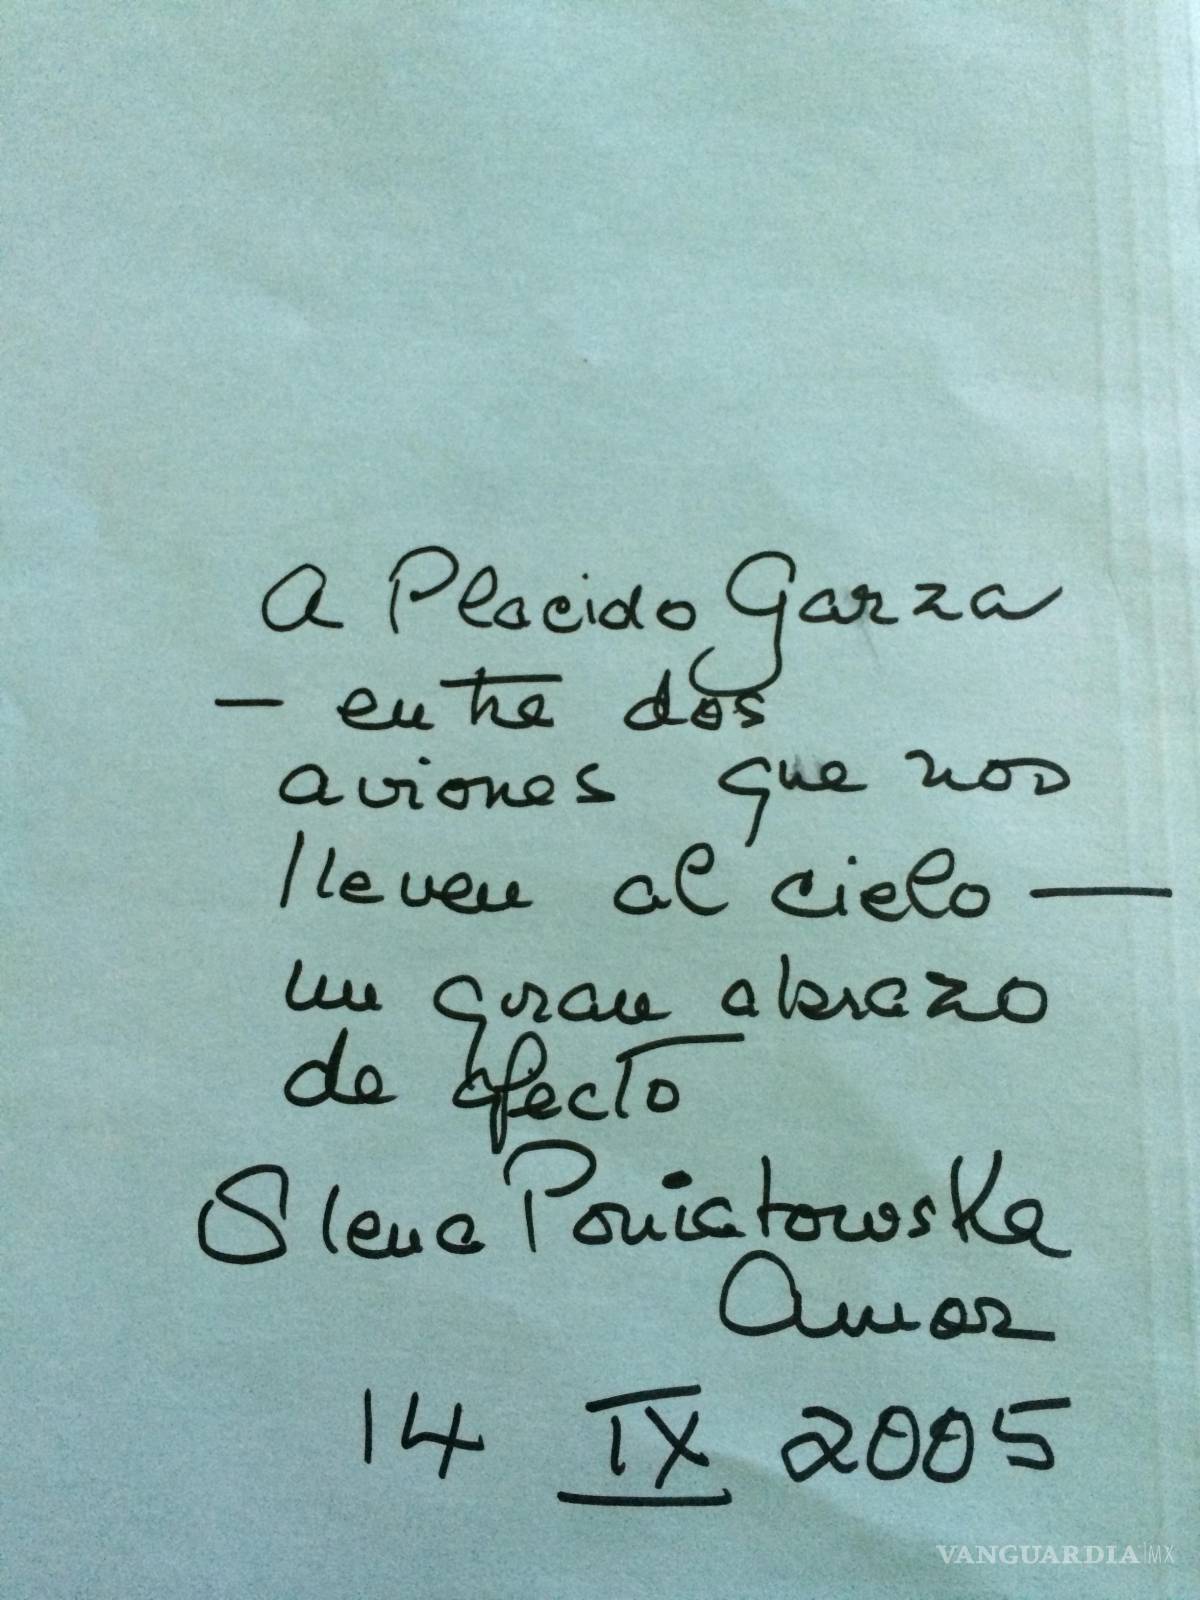 A Placido Garza
— entre dos
aviones que nos
lleven al cielo —
un gran abrazo
de afecto
Elena Poniatowska
Amor
14 IX 2005
VANGUARDIA MX